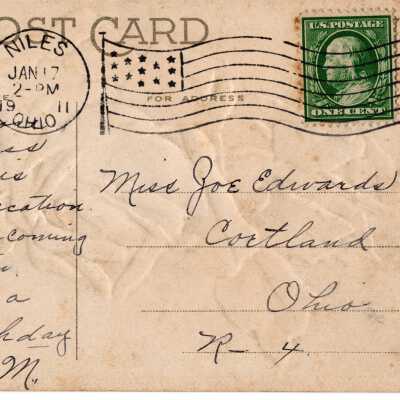 POST CARD
NILES
JAN 17
2-PM
19 11
OHIO
U.S. POSTAGE
ONE CENT
FOR ADDRESS
Miss Zoe Edwards
Cortland
Ohio
R - 4.
ss
is
cation
coming
a
hday
M.